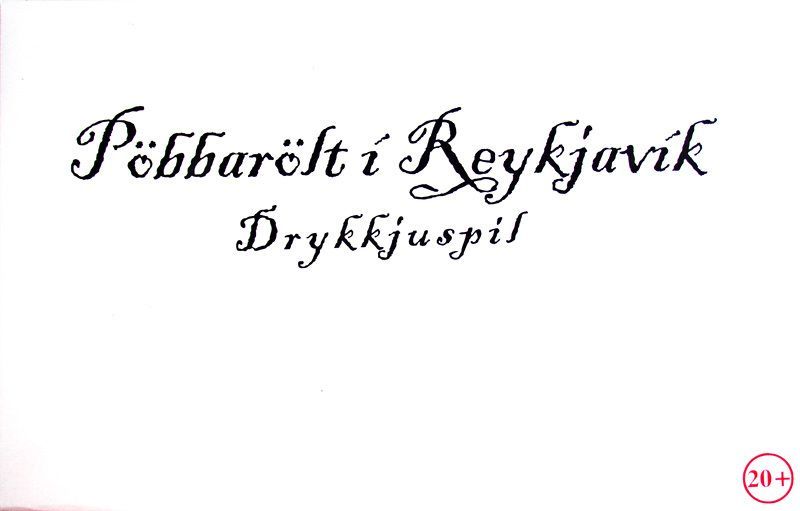 Pöbbarölt í Reykjavík
Drykkjuspil
20+